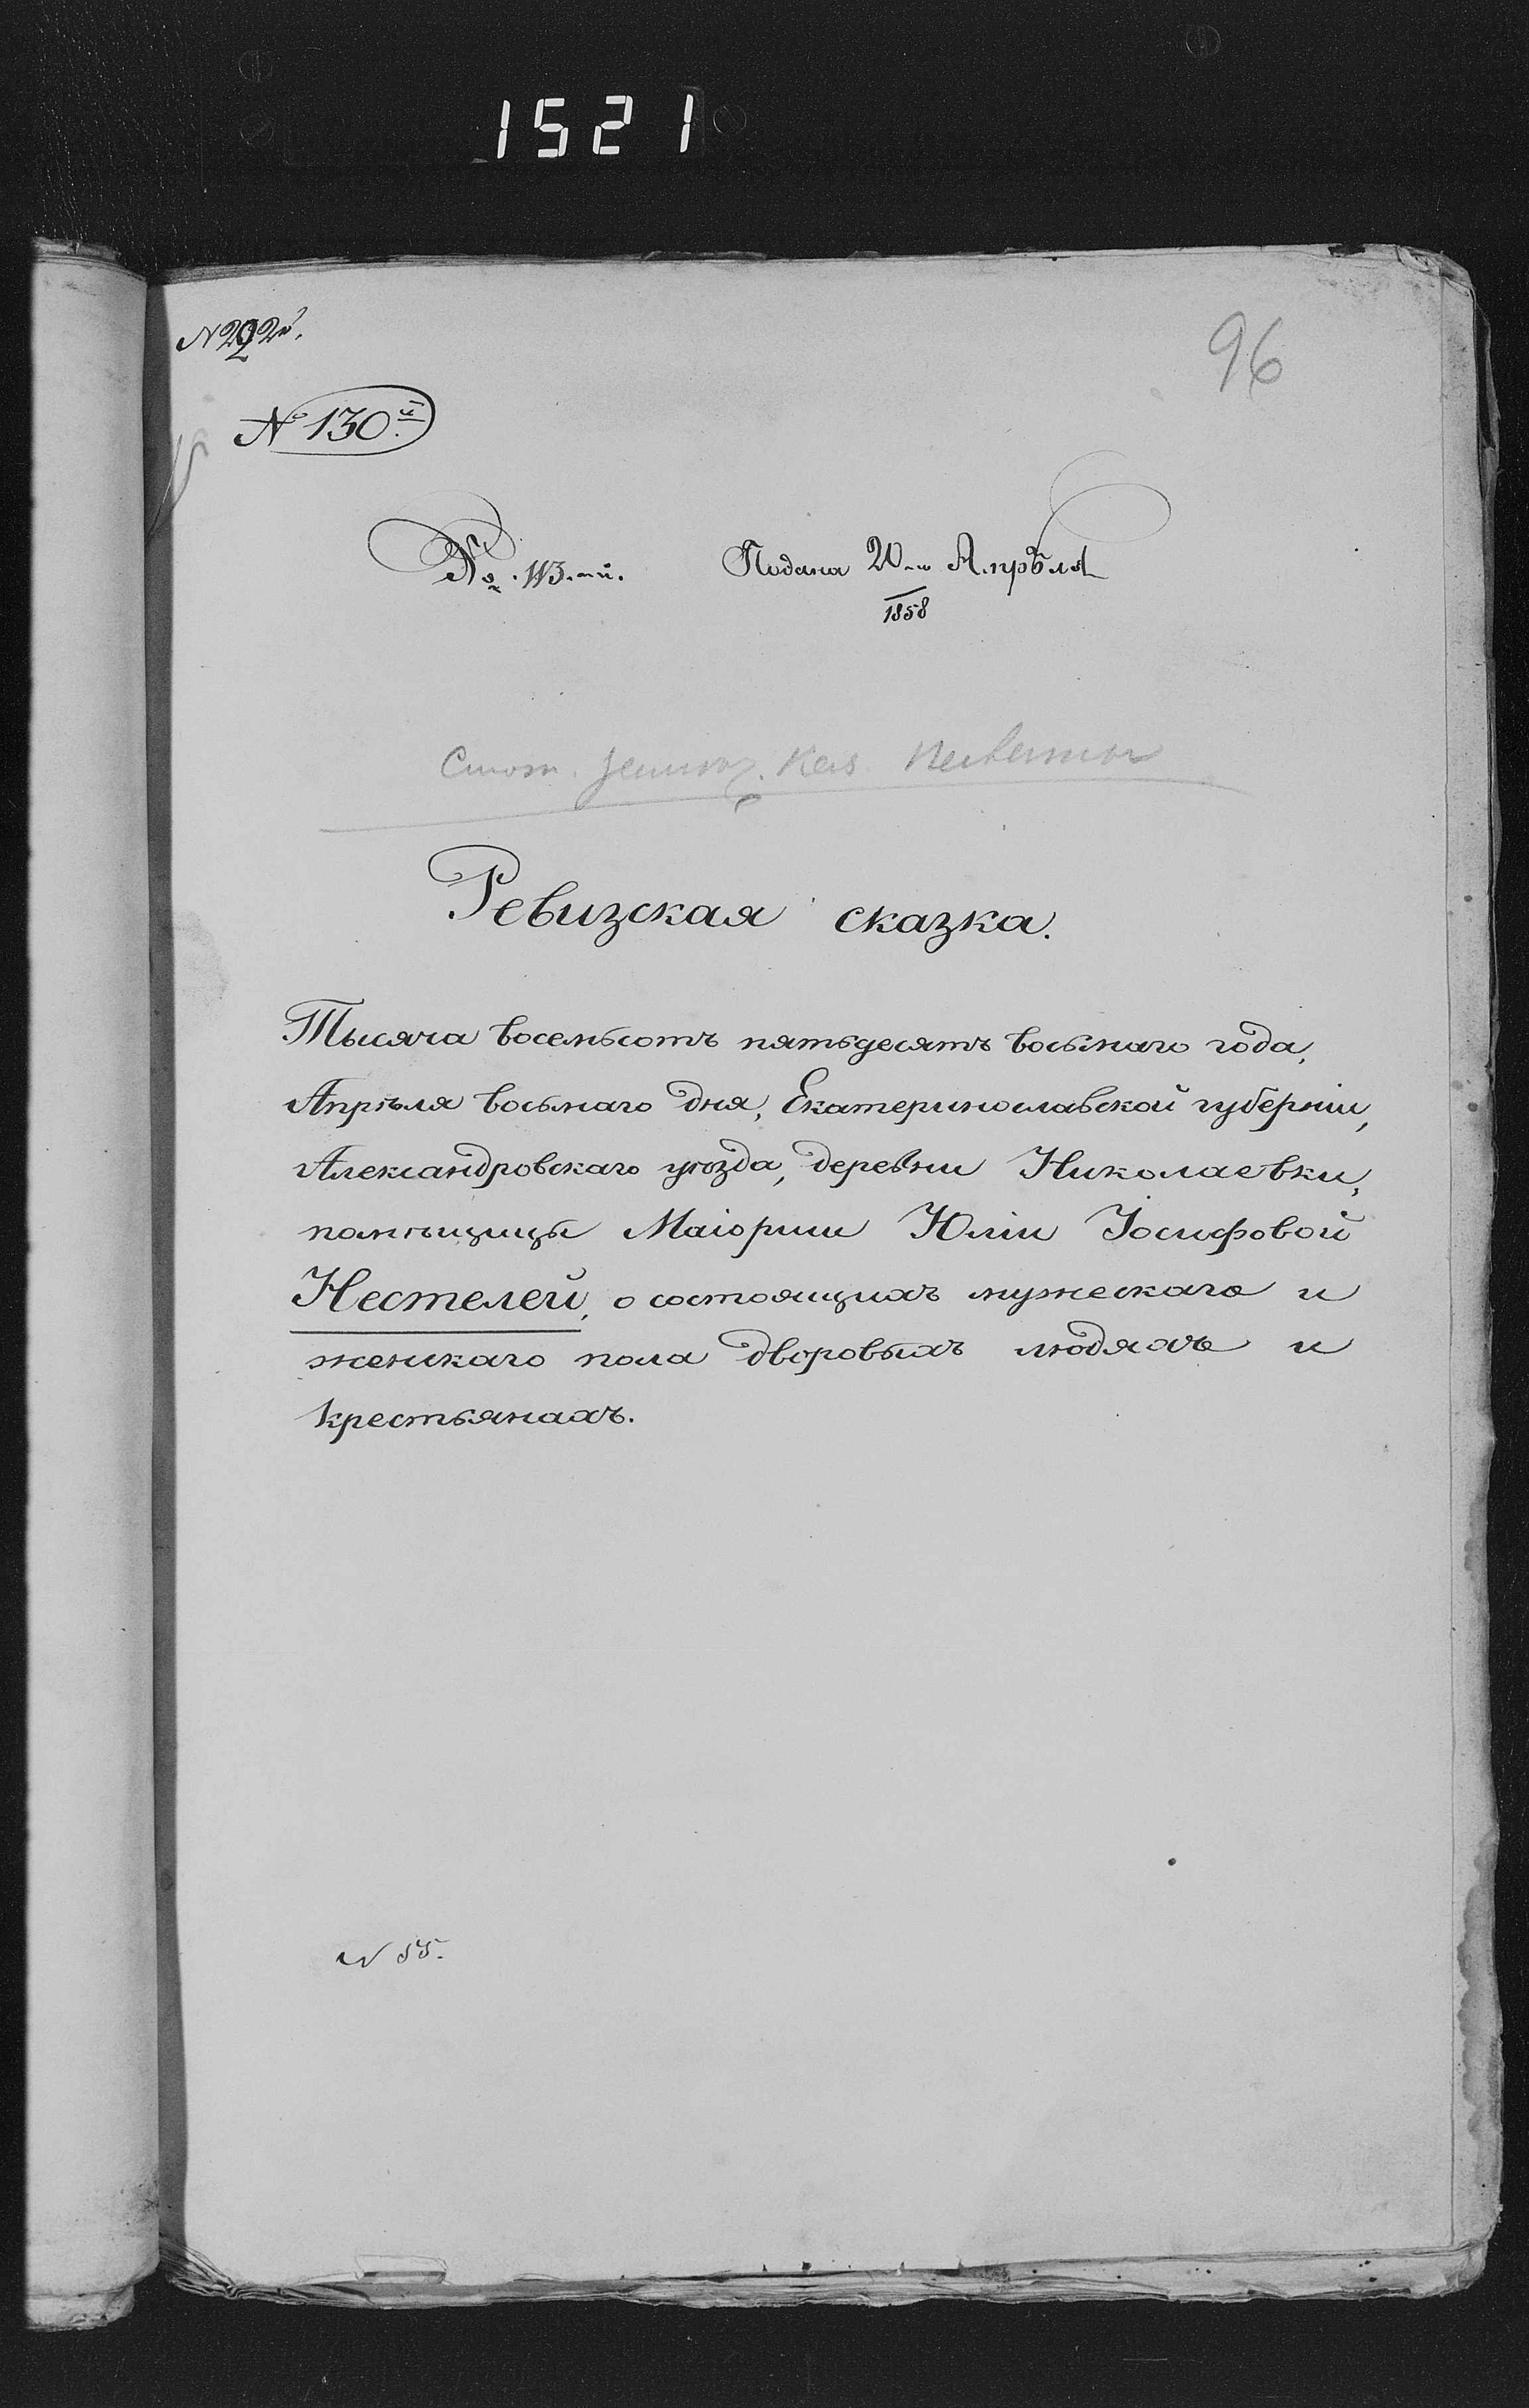 1521
N 292й.
96
№ 130й.
№. 113.-й. Подана 20-го Апрѣля
1858
Ревизская сказка.
Тысяча восемьсотъ пятьдесятъ восьмаго года,
Апрѣля восьмаго дня, Екатеринославской губерніи,
Александровскаго уѣзда, деревни Николаевки,
помѣщицы Маіорши Юліи Іосифовой
Нестелей, о состоящихъ мужескаго и
женскаго пола дворовыхъ людяхъ и
крестьянахъ.
N 55.